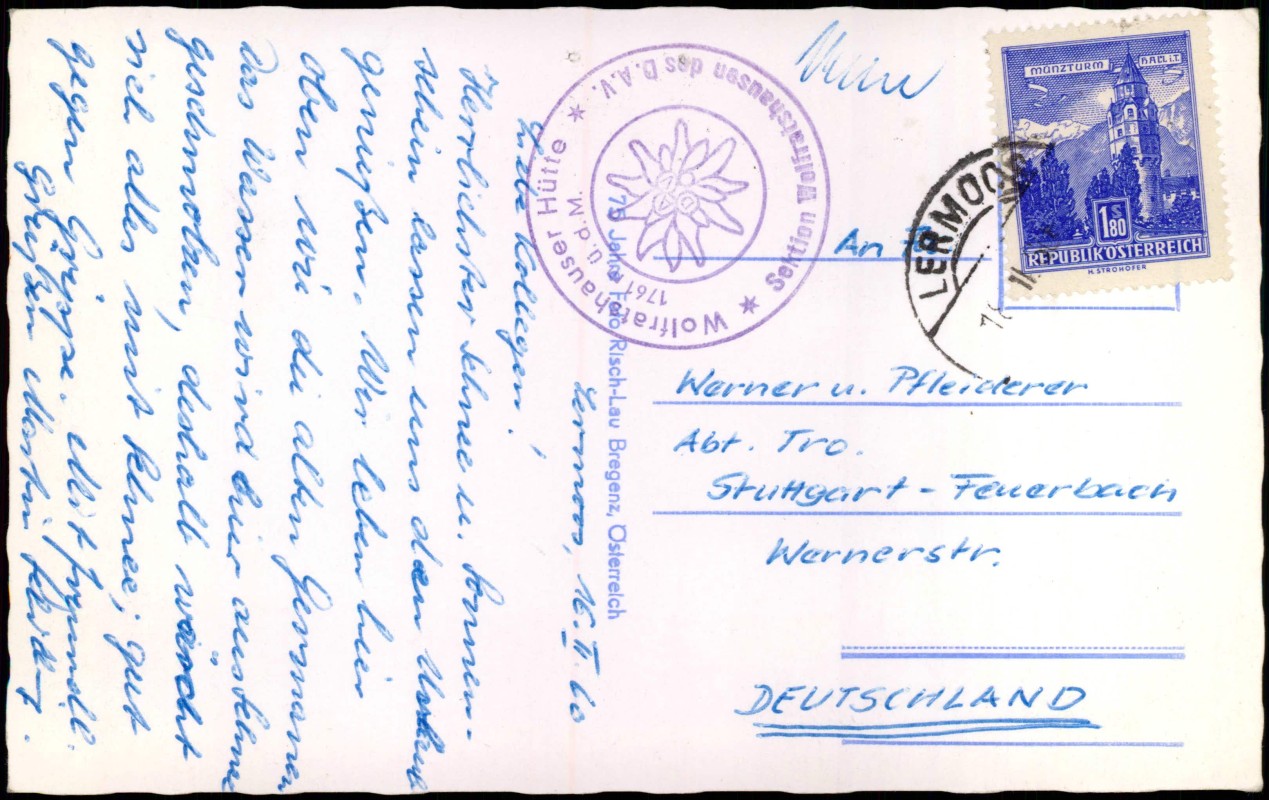 Lermoos, 16.II.60
Liebe Kollegen!
Herrlichster Schnee u. Sonnen-
schein lassen uns den Urlaub
genießen. Wir leben hier
oben wie die alten Germanen
Das Wasser wird nur aus Schnee
geschmolzen, deshalb wäscht
sich alles mit Schnee; gut
gegen Grippe. Mit freundl.
Grüßen Martin
Wolfratshauser Hütte
1761 ü.d.M.
Sektion Wolfratshausen des D.A.V.
75 Jahre Foto Risch-Lau Bregenz, Österreich
MÜNZTURM HALL i.T.
1 S 80
REPUBLIK ÖSTERREICH
H. STROHOFER
LERMOOS
An
Werner u. Pfleiderer
Abt. Tro.
Stuttgart - Feuerbach
Wernerstr.
DEUTSCHLAND